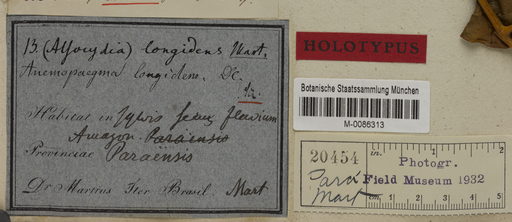 13. (Alsocydia) longidens Mart.
Anemopaegma longidens. DC.
Habitat in sylvis secus fluvium
Amazon. Paraënsis
Provinciae Paraënsis
Dr Martius Iter Brasil. Mart
HOLOTYPUS
Botanische Staatssammlung München
M-0086313
20454
Photogr.
Field Museum 1932
Pará
Mart
1
2
3
4
5